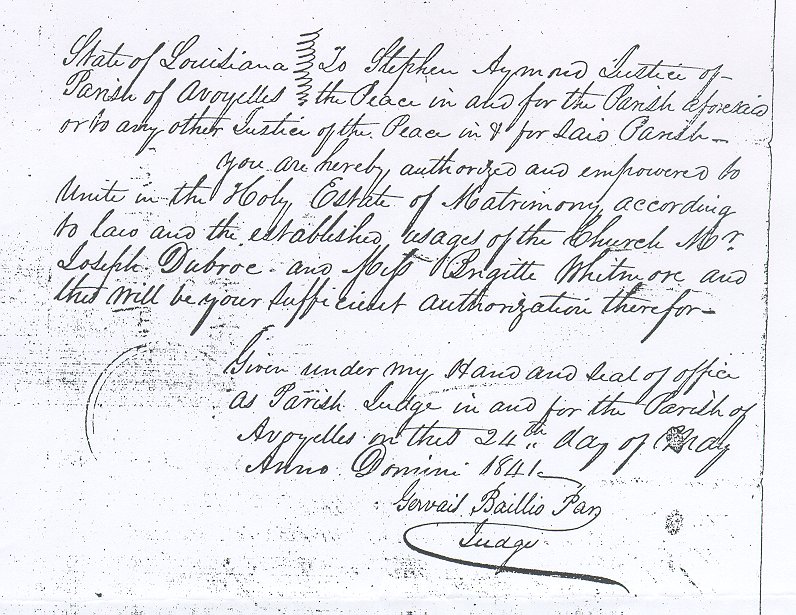 State of Louisiana To Stephen Aymond Justice of
Parish of Avoyelles the Peace in and for the Parish aforesaid
or to any other Justice of the Peace in & for said Parish
You are hereby authorized and empowered to
Unite in the Holy Estate of Matrimony, according
to law and the established usages of the Church Mr.
Joseph Dubroc and Miss Brigitte Whitmore and
this will be your sufficient authorization therefor
Given under my Hand and seal of office
as Parish Judge in and for the Parish of
Avoyelles on this 24th day of May
Anno Domini 1841
Gervais Baillio Par
Judge